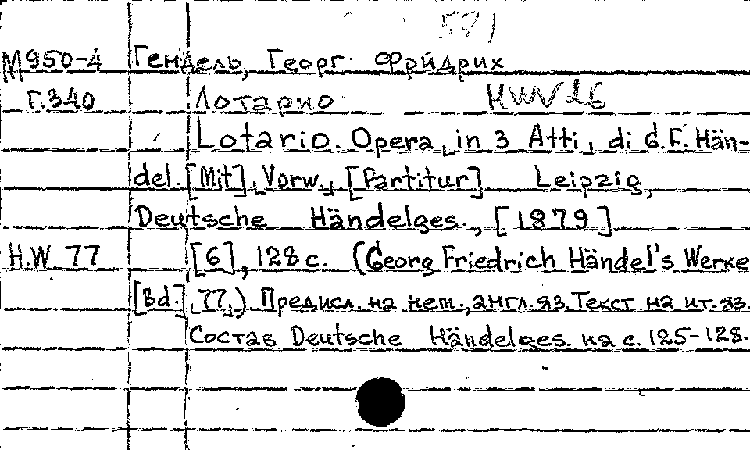 581
М950-4 Гендель, Георг Фридрих
Г.340 Лотарио HWV 26
Lotario. Opera in 3 Atti, di G.F. Hän-
del. [Mit] Vorw., [Partitur] Leipzig,
Deutsche Händelges., [1879]
H.W. 77 [6], 128 с. (Georg Friedrich Händel's Werke
[Bd.] 77.) Предисл. на нем., англ.яз. Текст на ит.яз.
Состав Deutsche Händelges. на с. 125-128.